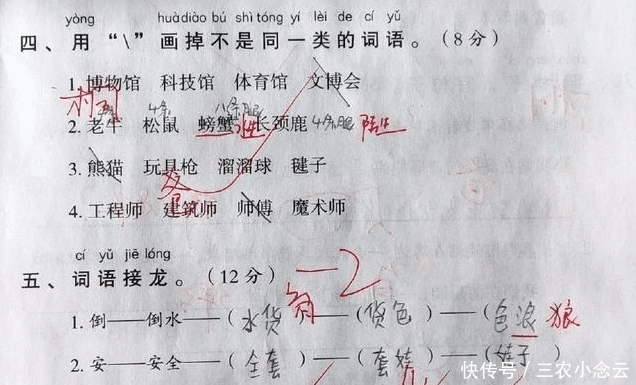 yòng huàdiào bú shì tóng yí lèi de cí yǔ
四、用“\”画掉不是同一类的词语。(8分)
1. 博物馆 科技馆 体育馆 文博会
4条 八条腿
2. 老牛 松鼠 螃蟹 长颈鹿 4条腿 陆生
3. 熊猫 玩具枪 溜溜球 毽子
4. 工程师 建筑师 师傅 魔术师
cí yǔ jiē lóng
五、词语接龙。(12分) —2
1. 倒——倒水——(水货)——(货色)——(色浪) 狼
2. 安——安全——(全套)——(套娃)——(娃子)
快传号/三农小念云